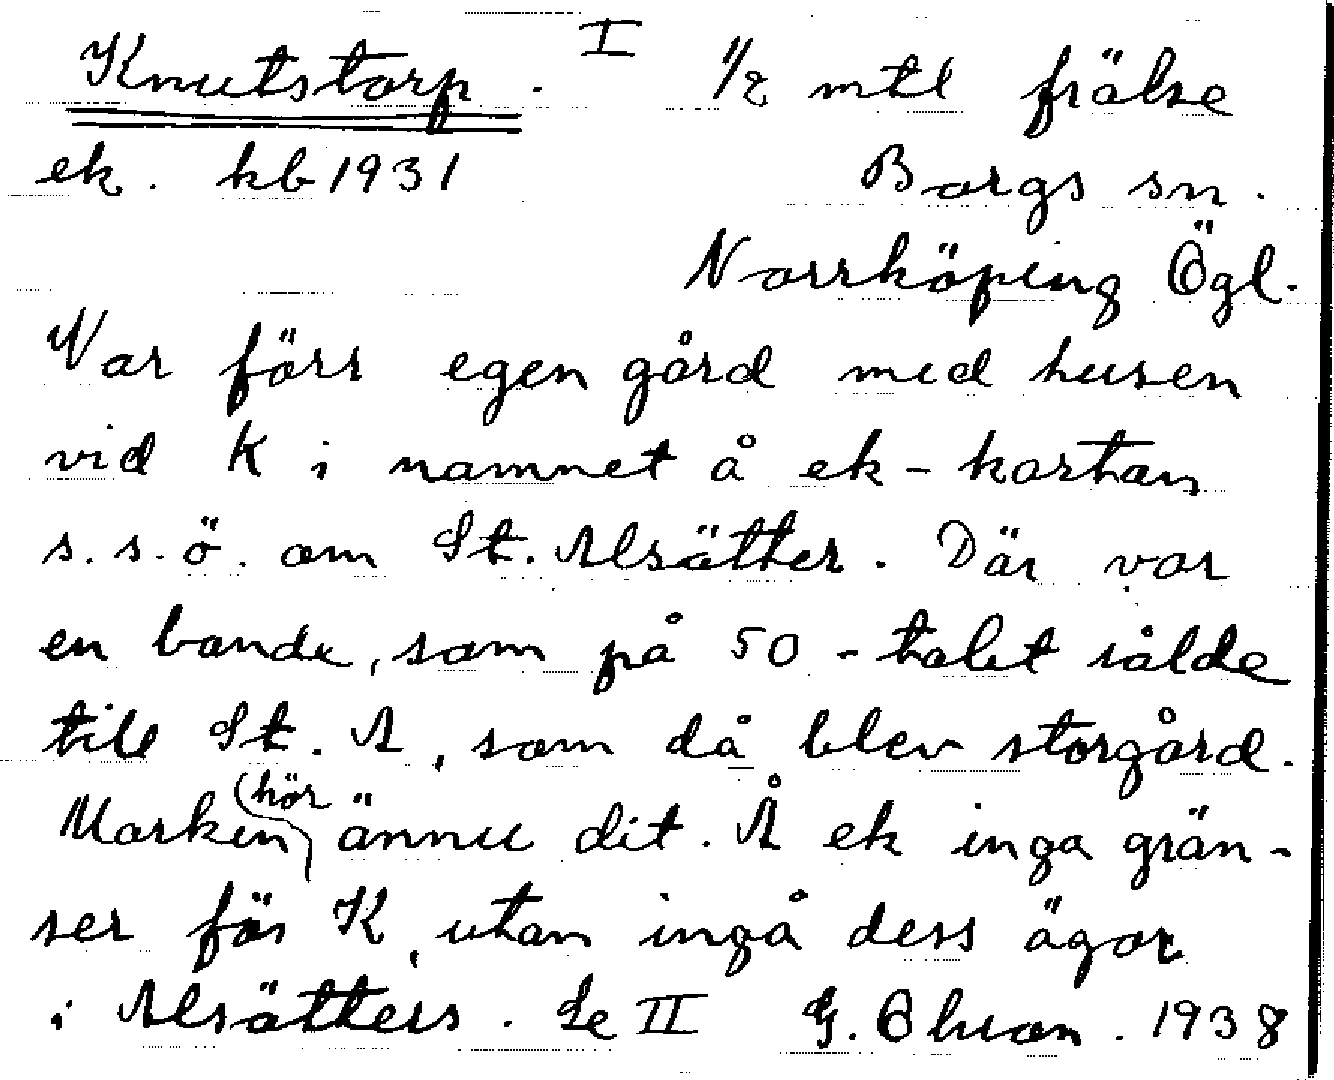 Knutstorp. I 1/2 mtl frälse
ek. kb 1931 Borgs sn.
Norrköping Ögl.
Var förr egen gård med husen
vid K i namnet å ek-kartan
s.s.ö. om St. Alsätter. Där var
en bonde, som på 50-talet sålde
till St. A, som då blev storgård.
Marken (hör) ännu dit. Å ek inga grän-
ser för K, utan ingå dess ägor
i Alsätters. Se II G. Ohson. 1938